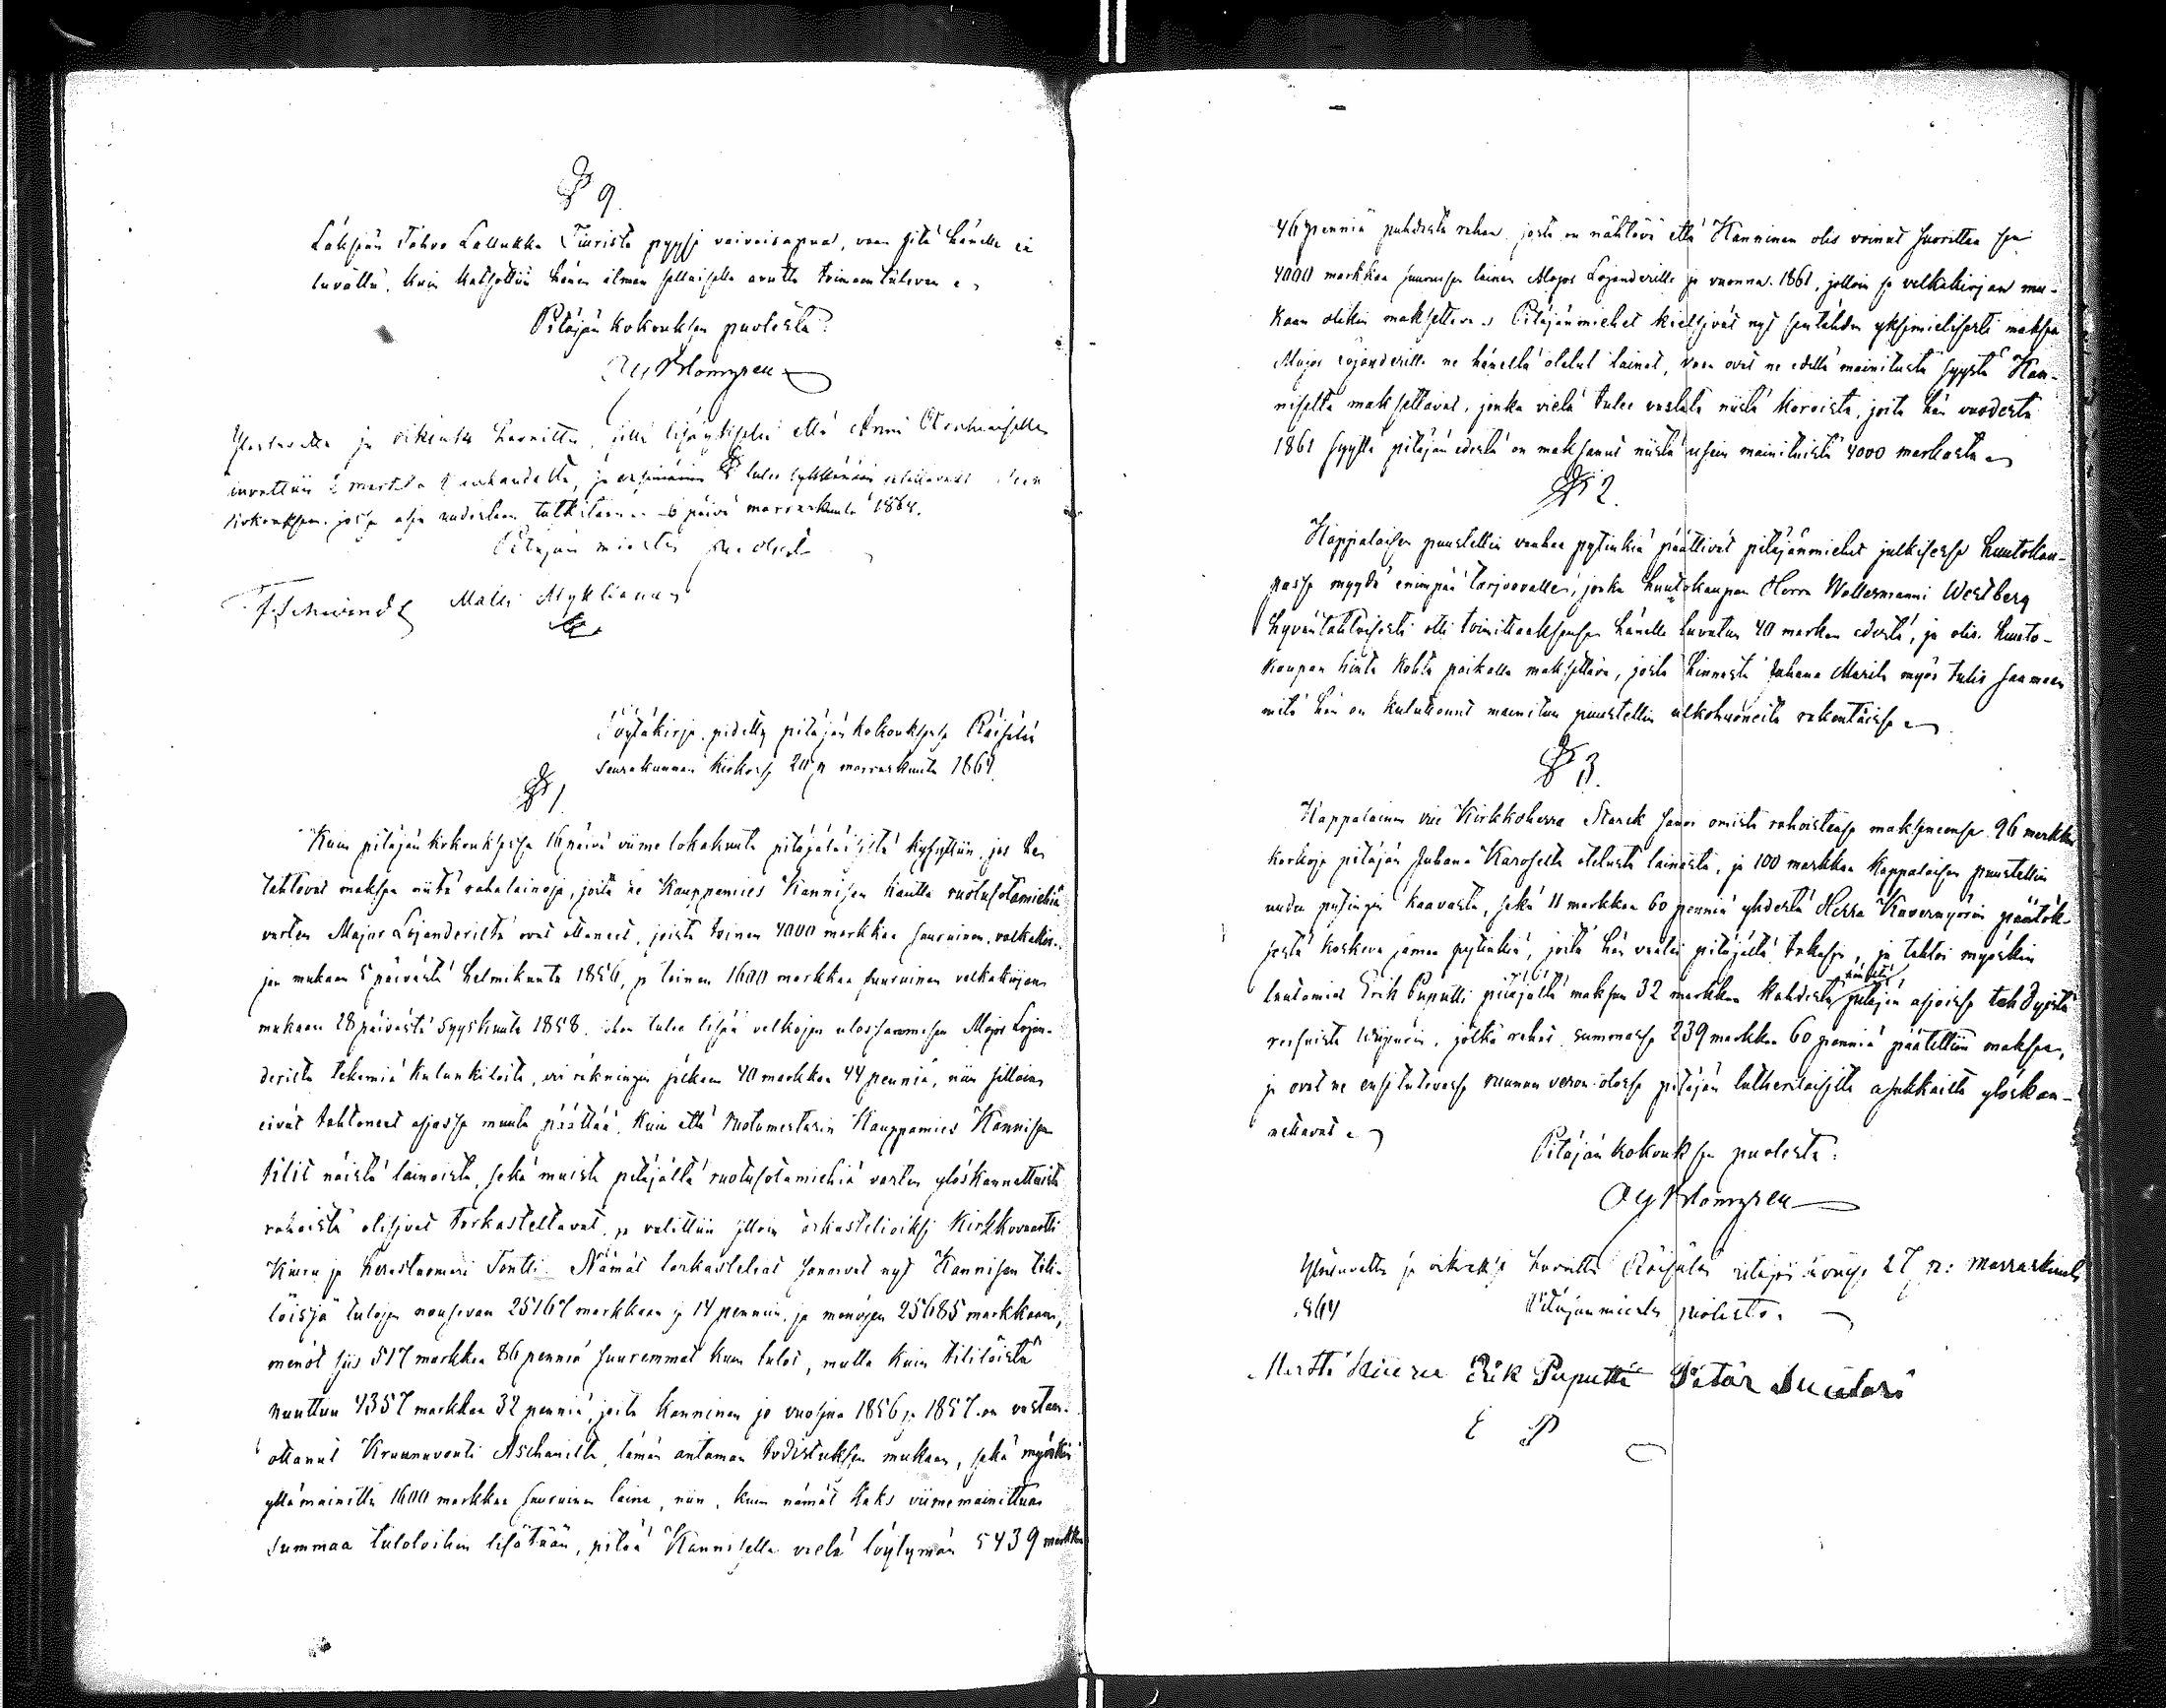 § 9.
Läksjän Tahvo Lallukka Tiurista pyysi vaivaisapua, vaan sitä hänelle ei
luvattu, kuin katsottiin hänen ilman sellaisetta avutta toimeentulevan.
Pitäjän kokouksen puolesta:
Blomgren
ja oikiaksi havaittu, sillä lisäyksellä että Anni
luvattiin 2 marrask. ja ensimäinen § tulee
kokouksen, jossa asia uudestaan tutkitaan 6 päivä marraskuuta 1864.
Pitäjän miesten puolesta
F. Schwindt Matti Myklianen
Pöytäkirja, pidetty pitäjän kokouksessa Räisälän
seurakunnan kirkossa 20 p. marraskuuta 1864.
§ 1.
Kuin pitäjän kokouksessa 16 päivä viime lokakuuta pitäjäläisiltä kysyttiin, jos he
tahtovat maksaa niitä rahalainoja, joita he Kauppamies Kannisen kautta ruotusotamiehiä
varten Major Lojanderilta ovat ottaneet, joista toinen 4000 markkaa suuruinen, velkakir-
jan mukaan 5 päivästä helmikuuta 1856, ja toinen 1600 markkaa suuruinen velkakirjan
mukaan 28 päivästä syyskuuta 1858, johon tulee lisää velkojen ulossaamisen Major Lojan-
derilta tekemiä kulunkiloita, eri räkningin jälkeen 40 markkaa 44 penniä, niin silloin
eivät tahtoneet asjassa muuta päättää, kuin että Ruotumestarin Kauppamies Kannisen
tilit näistä lainoista, sekä muista pitäjältä ruotusotamiehiä varten ylöskannettuista
rahoista olisivat tarkastettavat, ja valittiin silloin tarkastelioiksi Kirkkovaarti
Kiuru ja Herastuomari Tontti. Nämät tarkasteliat sanoivat nyt Kannisen tili-
löissä tulojen nousevan 25167 markkaan ja 14 penniin, ja menojen 25685 markkaan,
menot siis 517 markkaa 86 penniä suuremmat kuin tulot, mutta kuin tililöistä
puuttuu 4357 markkaa 32 penniä, joita Kanninen jo vuosina 1856 ja 1857 on vastaan-
ottanut Kruununvouti Aschanilta, tämän antaman todistuksen mukaan, sekä myöskin
yllämainittu 1600 markkaa suuruinen laina, niin, kuin nämät kaks viimemainittua
summaa tuloloihin lisätään, pitää Kannisella vielä löytymän 5439 markkaa
46 penniä puhdasta rahaa, josta on nähtävä että Kanninen olis voinut suorittaa sen
4000 markkaa suuruisen lainan Major Lojanderille jo vuonna 1861, jolloin se velkakirjan mu-
kaan olikin maksettava. Pitäjänmiehet kielsivät nyt sentähden yksimielisesti maksaa
Major Lojanderille ne hänellä olelut lainat, vaan ovat ne edellä mainitusta syystä Kan-
niselta maksettavat, jonka vielä tulee vastata niistä koroista, joita hän vuodesta
1861 syystä pitäjän edestä on maksanut niistä usein mainituista 4000 markasta.
§ 2.
Kappalaisen puustellin vanhaa pytinkiä päättivät pitäjänmiehet julkisessa huutokau-
passa myydä enimpää tarjoovalle, jonka huutokaupan Herra Woltermanni Westberg
hyväntahtoisesti otti toimittaaksensa hänelle luvatun 40 markan edestä, ja olis huuto-
kaupan hinta kohta paikalla maksettava, josta hinnasta Juhana Marila myös tulis saamaan
mitä hän on kuluttanut mainitun puustellin ulkohuoneita rakentaissa.
§ 3.
Kappalainen vice Kirkkoherra Starck sanoi omista rahoistansa maksaneensa 96 markkaa
korkoja pitäjän Juhana Karoselta olelusta lainasta, ja 100 markkaa Kappalaisen puustellin
uuden pytingin kaavasta, sekä 11 markkaa 60 penniä yhdestä Herra Kuvernyörin päätök-
sestä koskeva samaa pytinkiä, joita hän vaatii pitäjältä takasi, ja tahtoi myöskin
lautamies Erik Puputti pitäjältä maksun 32 markkaa kahdesta pitäjän asjoissa tehdyistä
reisuista Wiipuriin, jotka rahat summassa 239 markkaa 60 penniä päätettiin maksaa,
ja ovat ne ensitulevassa ruunun veron otossa pitäjän lutherilaisilta asukkailta ylöskan-
nettavat.
Pitäjän kokouksen puolesta:
Blomgren
Ylösluettu ja oikiaksi havaittu Räisälän pitäjän 27 p: marraskuuta
1864 Pitäjänmiesten puolesta.
Martti Kiuru Erik Puputti Pätär Suutari
E P